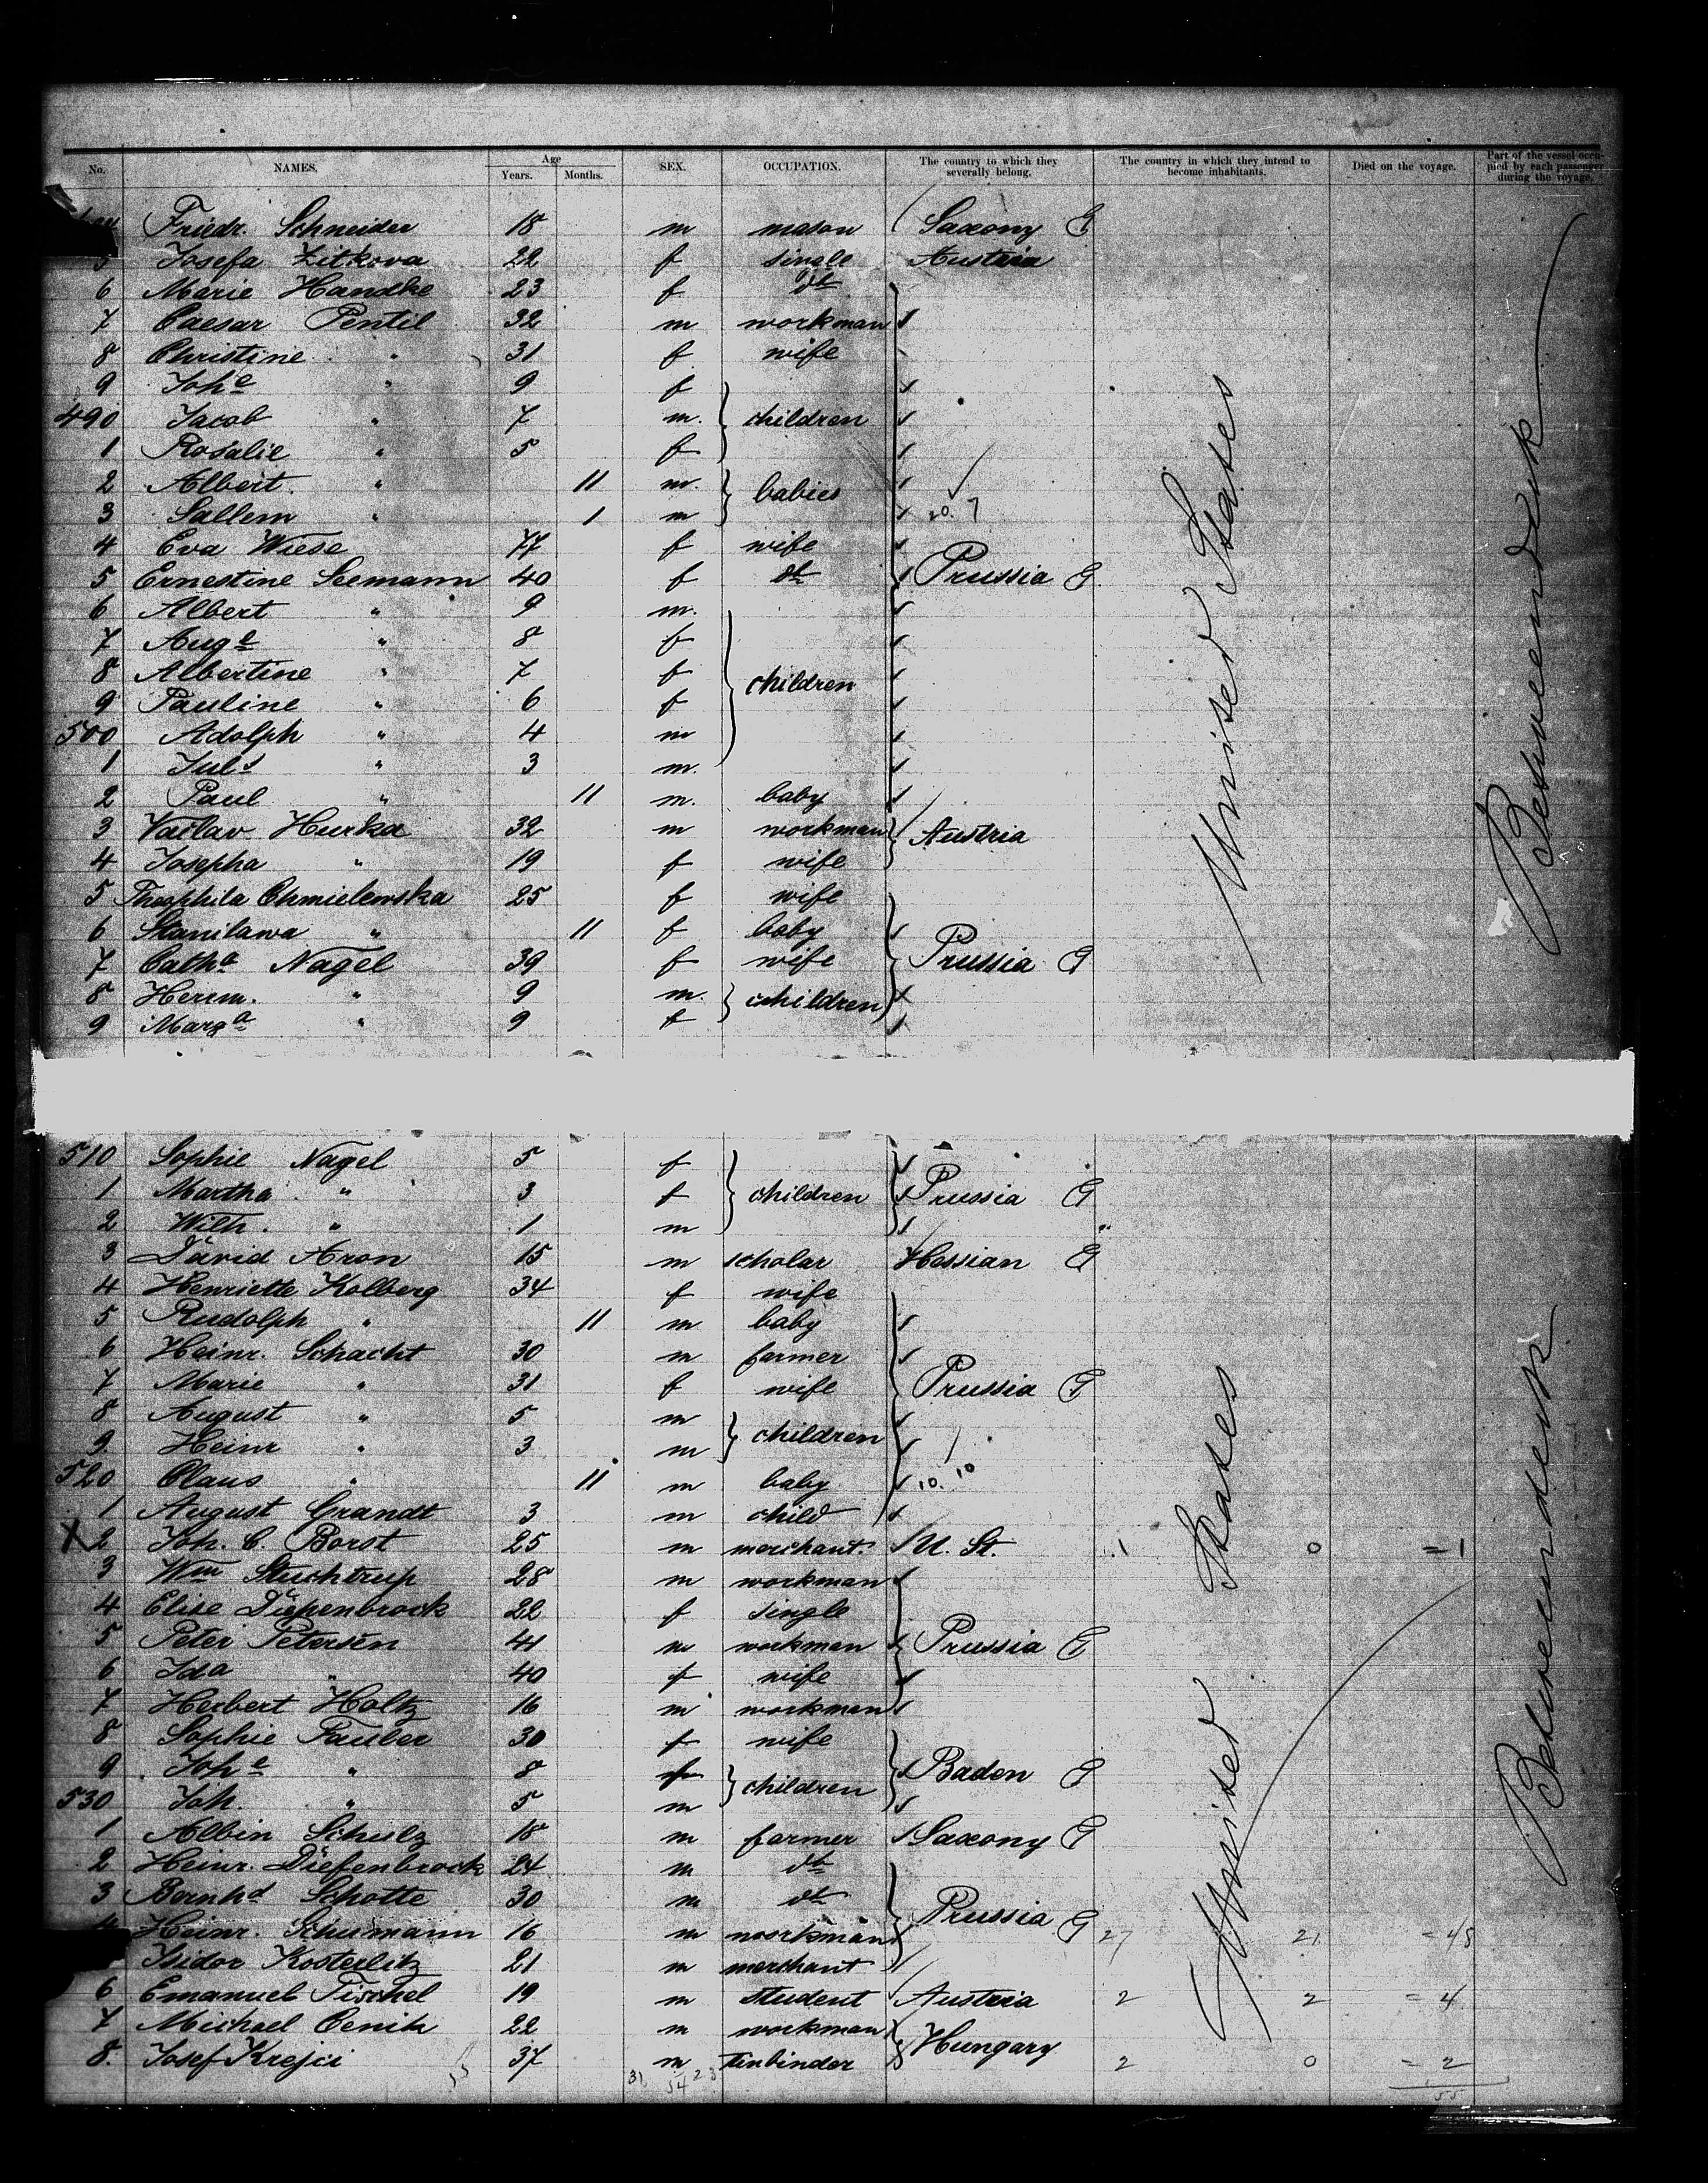 No. NAMES. Age Years. Months. SEX. OCCUPATION. The country to which they severally belong. The country in which they intend to become inhabitants. Died on the voyage. Part of the vessel occupied by each passenger during the voyage.
Friedr. Schneider 18 m mason Saxony G
5 Josefa Zitkova 22 f single Austria
6 Marie Handke 23 f do
7 Caesar Pentil 32 m workman
8 Christine " 31 f wife
9 Johe " 9 f
490 Jacob " 7 m. children
1 Rosalie " 5 f
2 Albert " 11 m. babies
3 Sallem " 1 m 20. 7
4 Eva Wiese 77 f wife
5 Ernestine Seemann 40 f do Prussia G
6 Albert " 9 m.
7 Auge " 8 f
8 Albertine " 7 f children
9 Pauline " 6 f
500 Adolph " 4 m
1 Juls " 3 m.
2 Paul " 11 m. baby
3 Vaclav Hurka 32 m workman Austria
4 Josepha " 19 f wife
5 Theophila Chmielewska 25 f wife
6 Stanilawa " 11 f baby
7 Catha Nagel 39 f wife Prussia G
8 Herm. " 9 m. children
9 Marga " 9 f
United States
Betweendeck
510 Sophie Nagel 5 f
1 Martha " 3 f children Prussia G
2 Wilh. " 1 m
3 David Aron 15 m scholar Hessian G
4 Henriette Kolberg 34 f wife
5 Rudolph " 11 m baby
6 Heinr. Schacht 30 m farmer
7 Marie " 31 f wife Prussia G
8 August " 5 m children
9 Heinr " 3 m
520 Claus " 11 m baby 10. 10
1 August Grandt 3 m child
X 2 Joh. C. Borst 25 m merchant. U. St. 1 0 = 1
3 Wm Stuchtrup 28 m workman
4 Elise Diepenbrock 22 f single
5 Peter Petersen 41 m workman Prussia G
6 Ida " 40 f wife
7 Herbert Holtz 16 m workman
8 Sophie Fauber 30 f wife
9 Johe " 8 f children Baden G
530 Joh. " 5 m
1 Albin Schulz 18 m farmer Saxony G
2 Heinr. Diefenbrock 24 m do
3 Bernhd Schotte 30 m do Prussia G
4 Heinr. Schumann 16 m workman 27 21 = 48
Isidor Kosterlitz 21 m merchant
6 Emanuel Fischel 19 m student Austria 2 2 = 4
7 Michael Cenik 22 m workman Hungary
8. Josef Krejci 37 m tinbinder 2 0 = 2
55
United States
Betweendeck